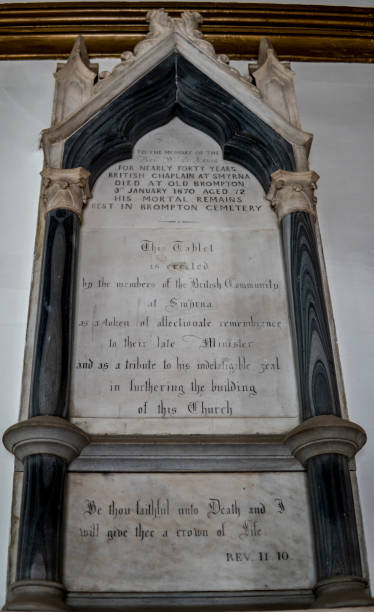 TO THE MEMORY OF THE
REV. W. B. LEWIS
FOR NEARLY FORTY YEARS
BRITISH CHAPLAIN AT SMYRNA
DIED AT OLD BROMPTON
3RD JANUARY 1870 AGED 72
HIS MORTAL REMAINS
REST IN BROMPTON CEMETERY
This Tablet
is erected
by the members of the British Community
at Smyrna
as a token of affectionate remembrance
to their late Minister
and as a tribute to his indefatigible zeal
in furthering the building
of this Church
Be thou faithful unto Death and I
will give thee a crown of Life
REV. II 10